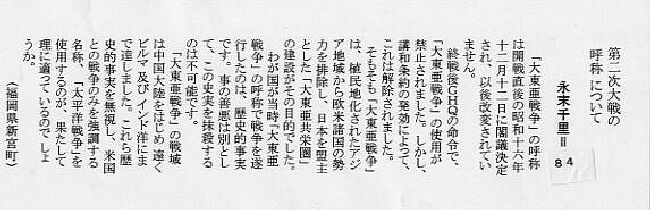 第二次大戦の
呼称について
永末千里＝
84
「大東亜戦争」の呼称
は開戦直後の昭和十六年
十二月十二日に閣議決定
され、以後改変されてい
ません。
終戦後GHQの命令で、
「大東亜戦争」の使用が
禁止されました。しかし、
講和条約の発効によって、
これは解除されました。
そもそも「大東亜戦争」
は、植民地化されたアジ
ア地域から欧米諸国の勢
力を排除し、日本を盟主
とした「大東亜共栄圏」
の建設がその目的でした。
わが国が当時「大東亜
戦争」の呼称で戦争を遂
行したのは、歴史的事実
です。事の善悪は別とし
て、この史実を抹殺する
のは不可能です。
「大東亜戦争」の戦域
は中国大陸をはじめ遠く
ビルマ及びインド洋にま
で達しました。これら歴
史的事実を無視し、米国
との戦争のみを強調する
名称、「太平洋戦争」を
使用するのが、果たして
理に適っているのでしょ
うか。
（福岡県新宮町）